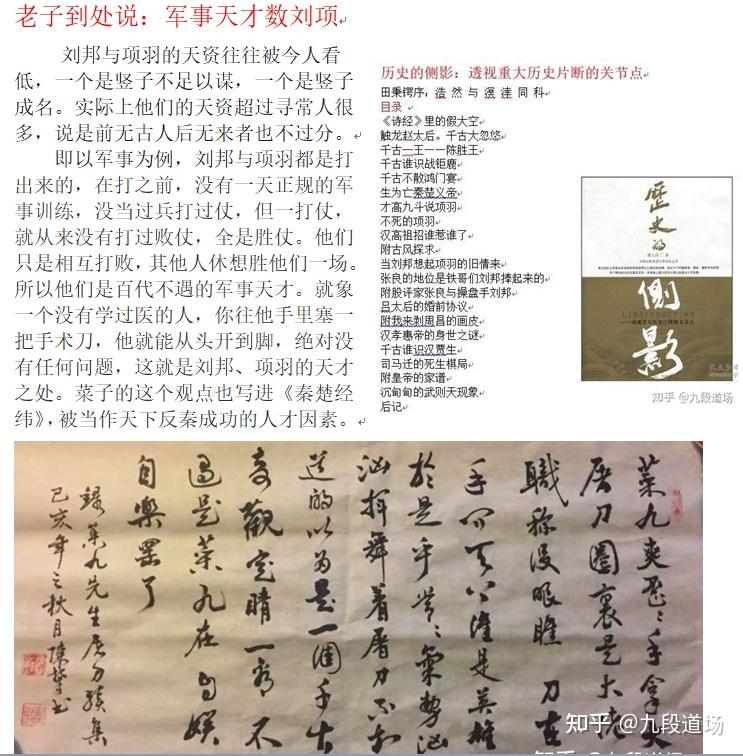 老子到处说：军事天才数刘项
刘邦与项羽的天资往往被今人看
低，一个是竖子不足以谋，一个是竖子
成名。实际上他们的天资超过寻常人很
多，说是前无古人后无来者也不过分。
即以军事为例，刘邦与项羽都是打
出来的，在打之前，没有一天正规的军
事训练，没当过兵打过仗，但一打仗，
就从来没有打过败仗，全是胜仗。他们
只是相互打败，其他人休想胜他们一场。
所以他们是百代不遇的军事天才。就象
一个没有学过医的人，你往他手里塞一
把手术刀，他就能从头开到脚，绝对没
有任何问题，这就是刘邦、项羽的天才
之处。菜子的这个观点也写进《秦楚经
纬》，被当作天下反秦成功的人才因素。
历史的侧影：透视重大历史片断的关节点
田秉锷序：浩然与滙洼同科
目录
《诗经》里的假大空
触龙赵太后。千古大忽悠
千古一王一一陈胜王
千古谁识战钜鹿
千古不散鸿门宴
生为亡秦楚义帝
才高九斗说项羽
不死的项羽
汉高祖招谁惹谁了
附古风探求
当刘邦想起项羽的旧情来
张良的地位是铁哥们刘邦捧起来的
附股评家张良与操盘手刘邦
吕太后的婚前协议
附我来剥周昌的画皮
汉孝惠帝的身世之谜
千古谁识汉贾生
司马迁的死生棋局
附皇帝的家谱
沉甸甸的武则天现象
后记
歷史的
側影
知乎 @九段道场
菜九爽歪歪手拿
屠刀圈裏是大佬
職称没眼瞧刀在
手问天下谁是英雄
於是乎常常氣势汹
汹挥舞着屠刀不知
道的以为是一個手大
奇觀定睛一看不
过是菜九在自娱
自樂罢了
録菜九先生屠刀续集
己亥年之秋月陳
知乎 @九段道场